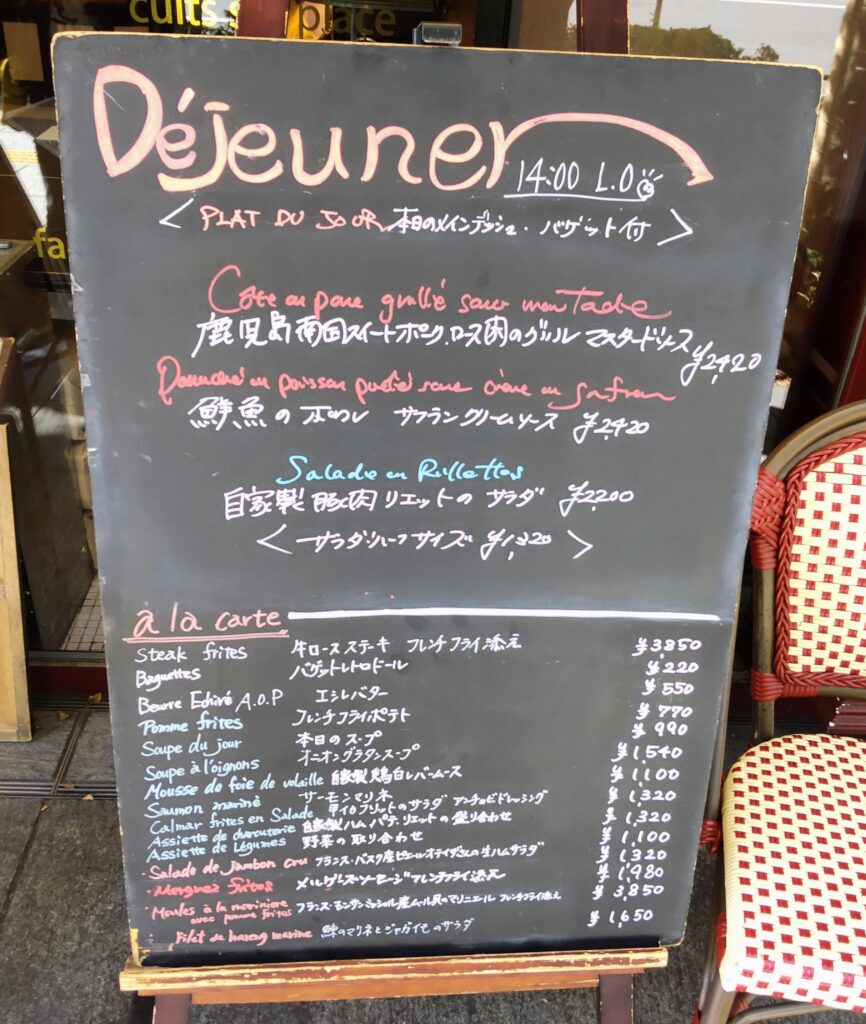 cults place
fa
Déjeuner
14:00 L.O
< PLAT DU JOUR 本日のメインディッシュ・バゲット付 >
鹿児島南国スイートポーク、ロース肉のグリル マスタードソース ¥2,420
鮮魚の サフランクリームソース ¥2,420
Salade en Rillettes
自家製 豚肉リエットの サラダ ¥2,200
< サラダ・ハーフサイズ ¥1,320 >
à la carte
Steak frites 牛ロースステーキ フレンチフライ添え ¥3,850
Baguettes バゲットレトロドール ¥220
Beurre Echiré A.O.P エシレバター ¥550
Pomme frites フレンチフライポテト ¥770
Soupe du jour 本日のスープ ¥990
Soupe à l'oignons オニオングラタンスープ ¥1,540
Mousse de foie de volaille 自家製 鶏白レバームース ¥1,100
Saumon mariné サーモンマリネ ¥1,320
Calmar frites en Salade 甲イカフリットのサラダ アンチョビドレッシング ¥1,320
Assiette de charcuterie 自家製ハム パテ、リエットの盛り合わせ
Assiette de Légumes 野菜の取り合わせ ¥1,100
・Salade de jambon cru フランス・バスク産ピエールオテイザさんの生ハムサラダ ¥1,320
・Merguez frites メルゲーズ・ソーセージ フレンチフライ添え ¥1,980
・Moules à la marinière avec pomme frites フランス・モンサンミッシェル産ムール貝のマリニエール フレンチフライ添え ¥3,850
Filet de hareng marine 鰊のマリネとジャガイモのサラダ ¥1,650